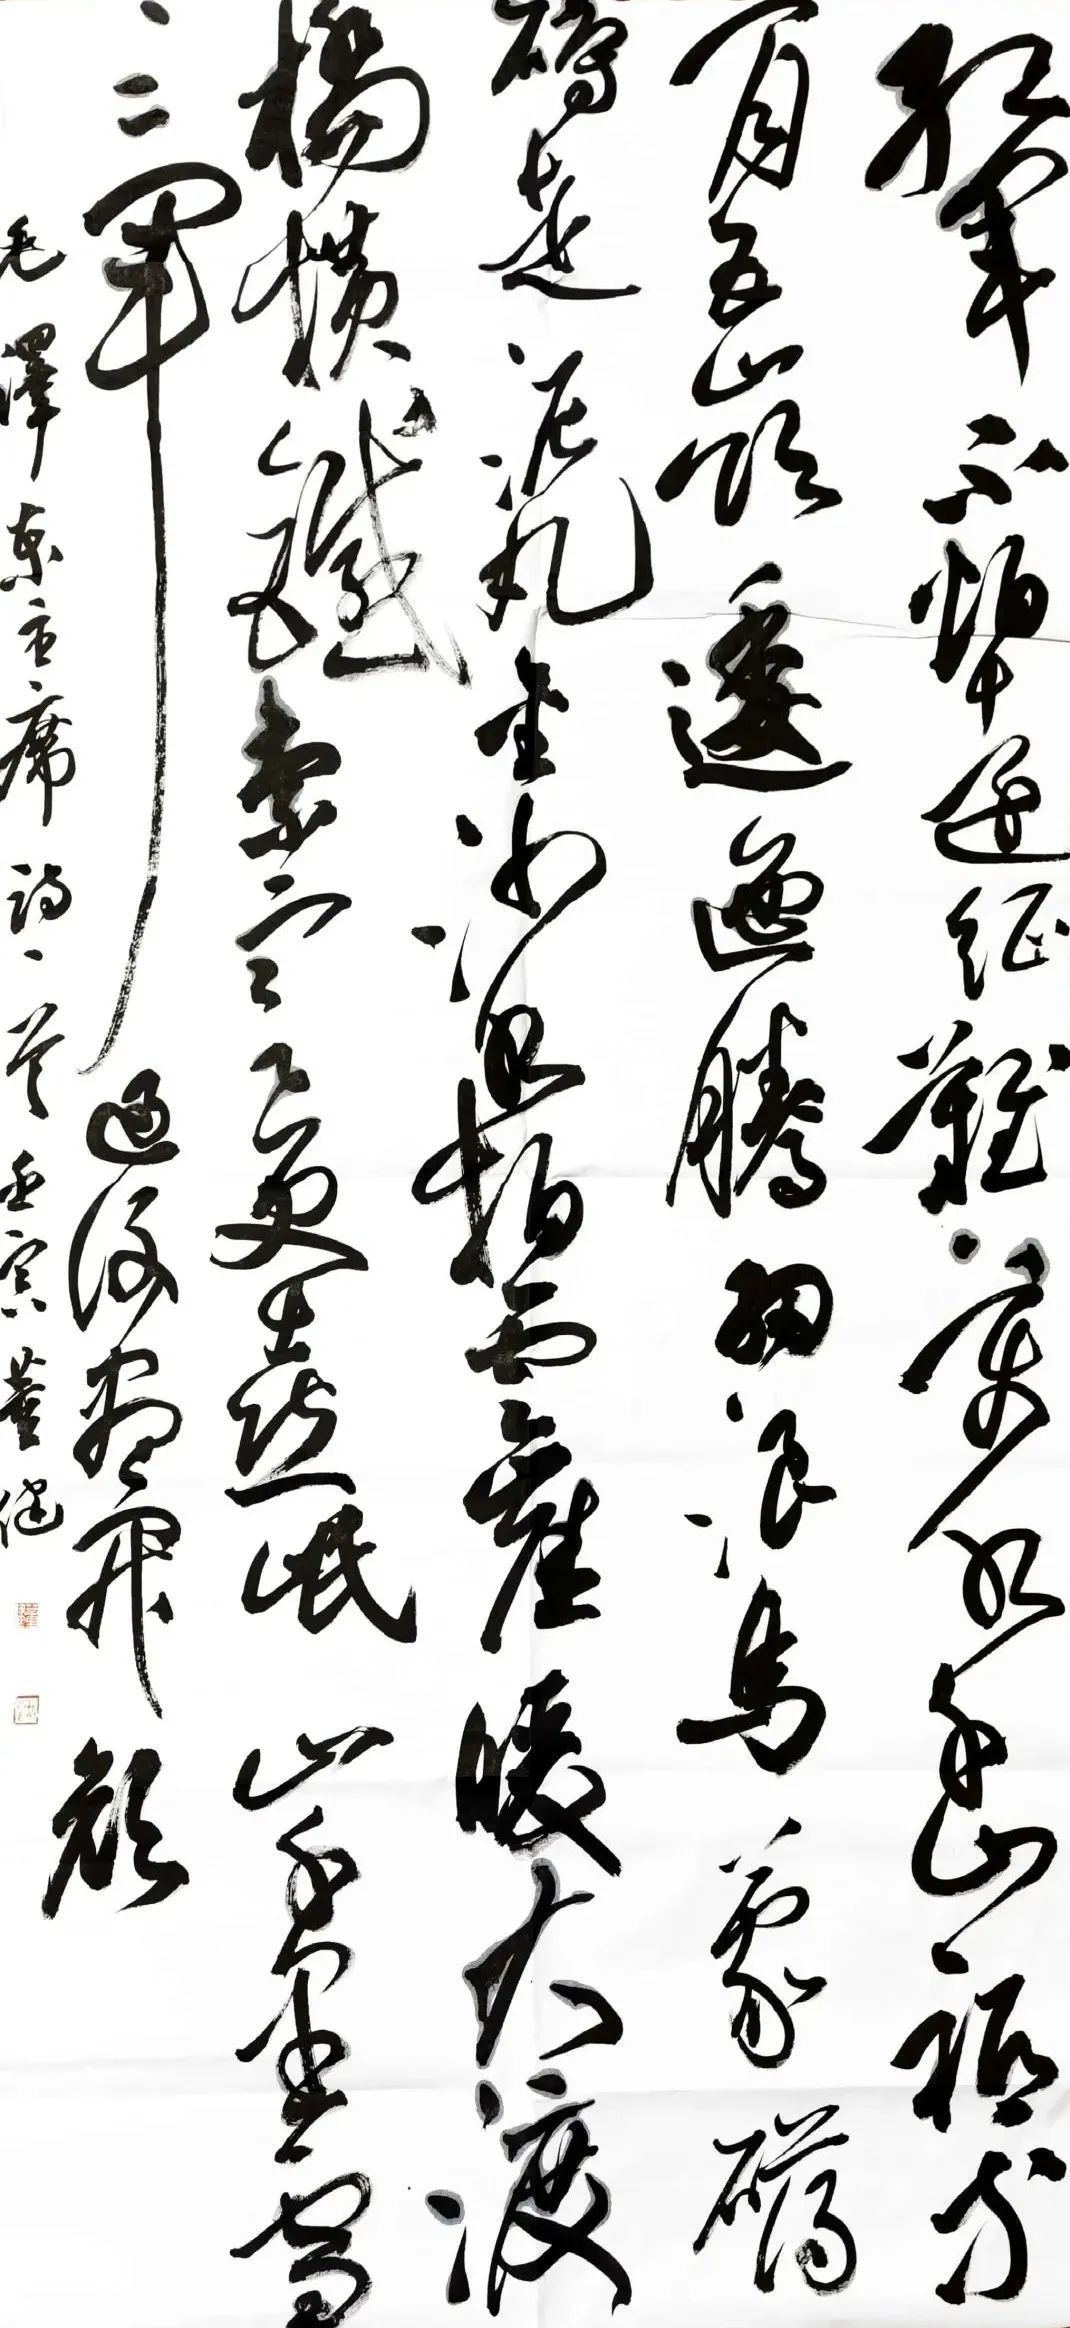 紅軍不怕遠征難萬水千山祗等
閒五嶺逶迤騰細浪烏蒙磅
礴走泥丸金沙浪拍雲崖暖大渡
橋横鐵索寒更喜岷山千里雪
三軍過後盡開顏
毛澤東主席詩一首壬寅董健